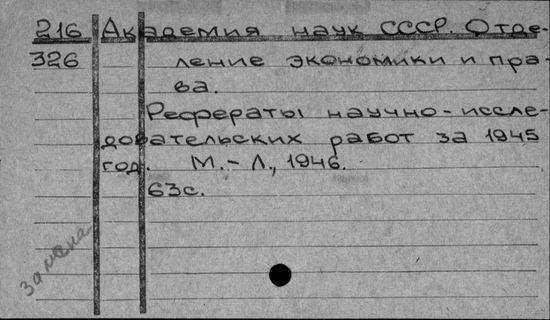 216 Академия наук СССР. Отде-
326 ление экономики и пра-
ва.
Рефераты научно-иссле-
довательских работ за 1945
год. М.-Л., 1946.
63с.
замена